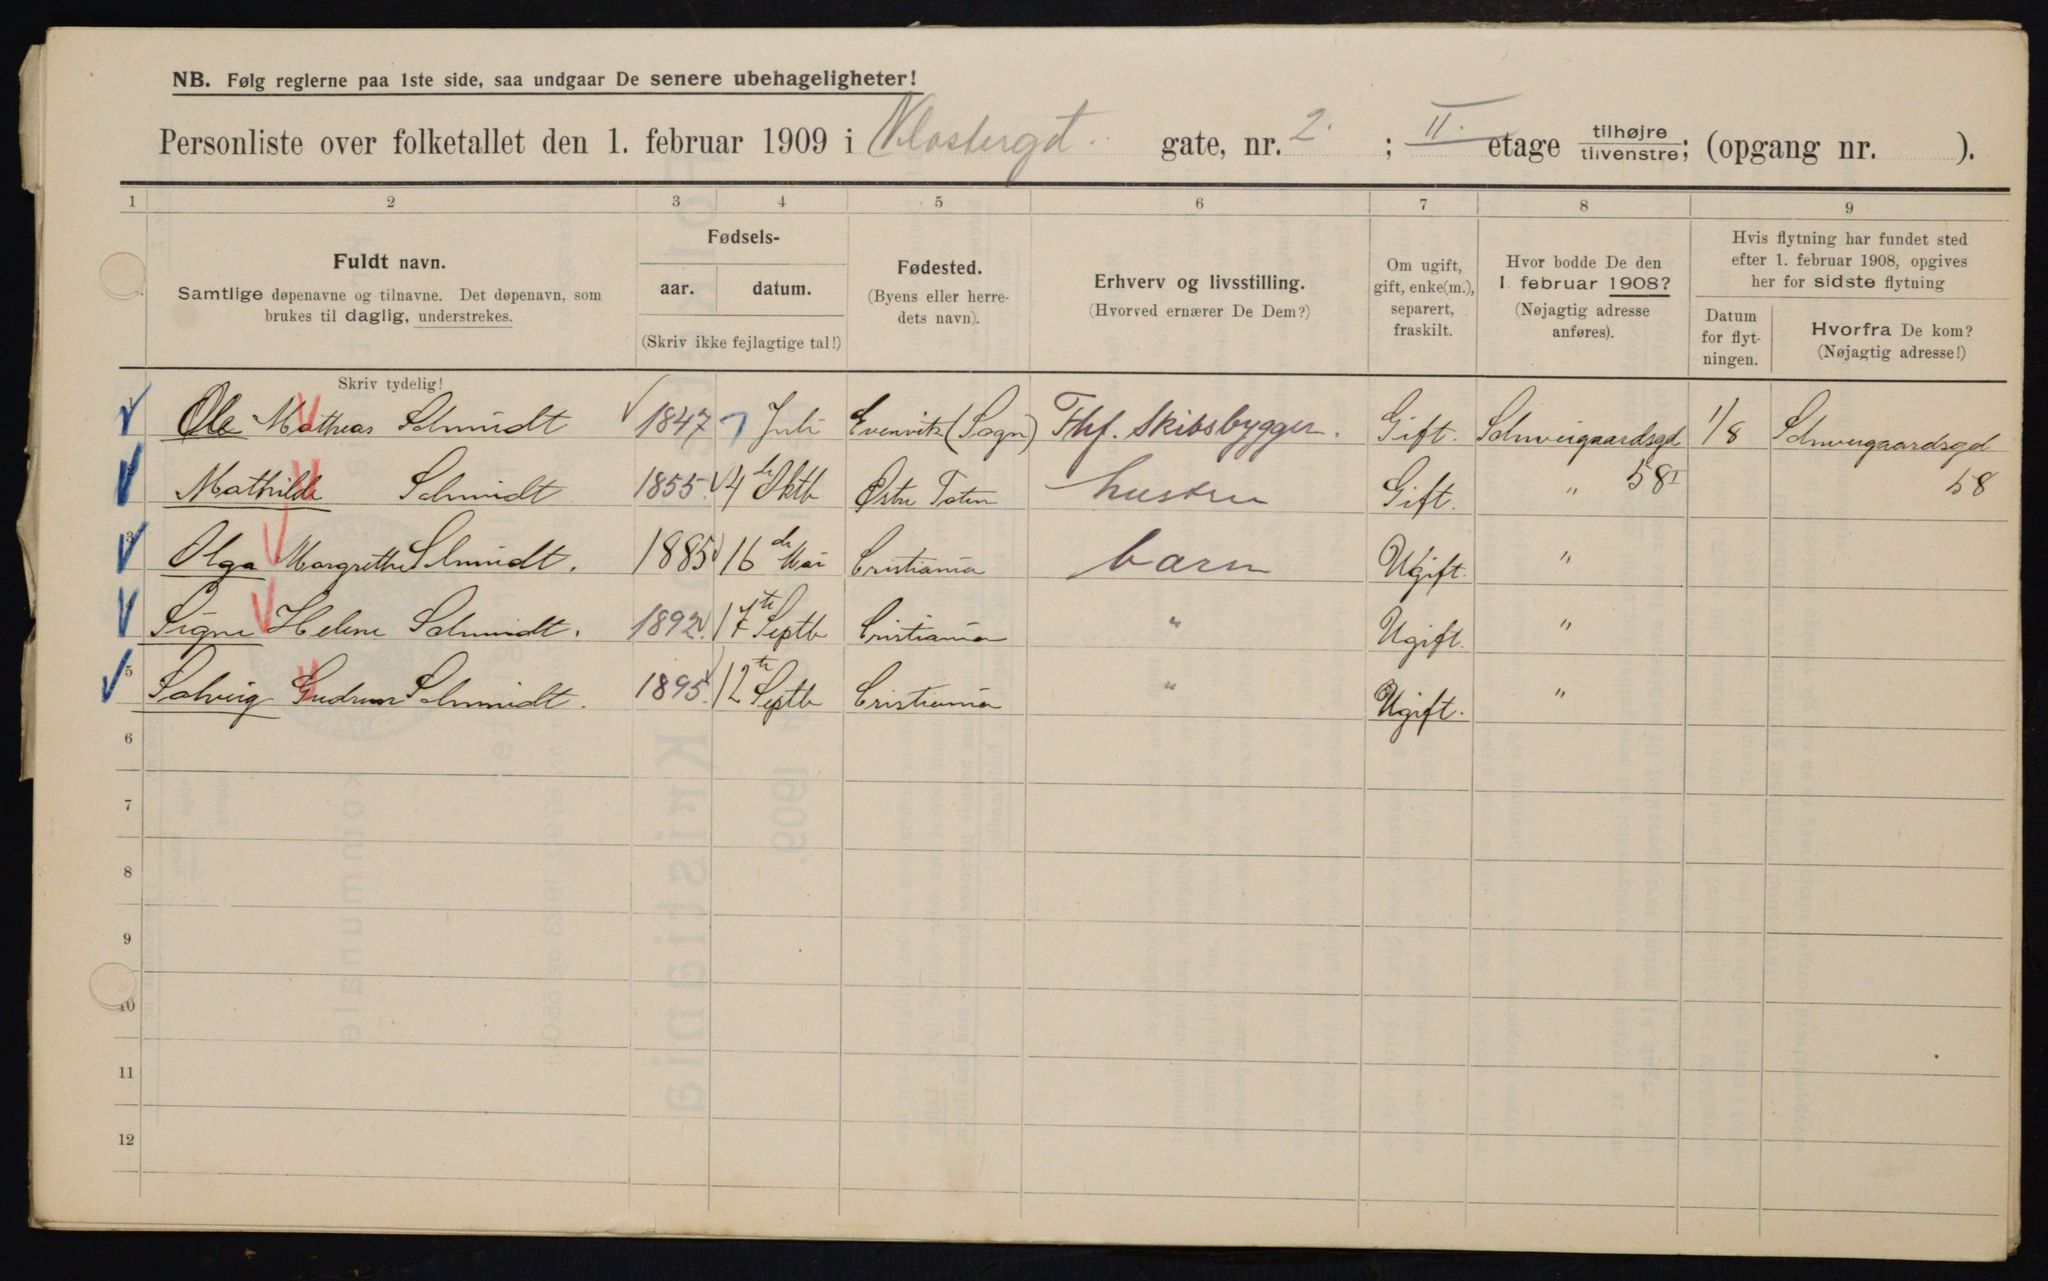 NB. Følg reglerne paa 1ste side, saa undgaar De senere ubehageligheter!
Personliste over folketallet den 1. februar 1909 i Klostergt. gate, nr. 2. ; II. etage tilhøjre tilvenstre; (opgang nr. ).
1 2 3 4 5 6 7 8 9
Fuldt navn.
Samtlige døpenavne og tilnavne. Det døpenavn, som
brukes til daglig, understrekes.
Skriv tydelig!
Fødsels-
aar. datum.
(Skriv ikke fejlagtige tal!)
Fødested.
(Byens eller herre-
dets navn).
Erhverv og livsstilling.
(Hvorved ernærer De Dem?)
Om ugift,
gift, enke(m.),
separert,
fraskilt.
Hvor bodde De den
1. februar 1908?
(Nøjagtig adresse
anføres).
Hvis flytning har fundet sted
efter 1. februar 1908, opgives
her for sidste flytning
Datum
for flyt-
ningen.
Hvorfra De kom?
(Nøjagtig adresse!)
Ole Mathias Schmidt 1847 7 Juli Evenvik (Sogn) Fhf. Skibsbygger. Gift. Schweigaardsgd 1/8 Schweigaardsgd
Mathilde Schmidt 1855 4de Oktb Østre Toten hustru Gift. " 58 I 58
3 Olga Margrethe Schmidt. 1885 16de Mai Cristiania barn Ugift. "
Signe Helene Schmidt. 1892. 17te Septb Cristiania " Ugift. "
5 Solveig Gudrun Schmidt. 1895. 12te Septb Cristiania " Ugift. "
6
7
8
9
10
11
12